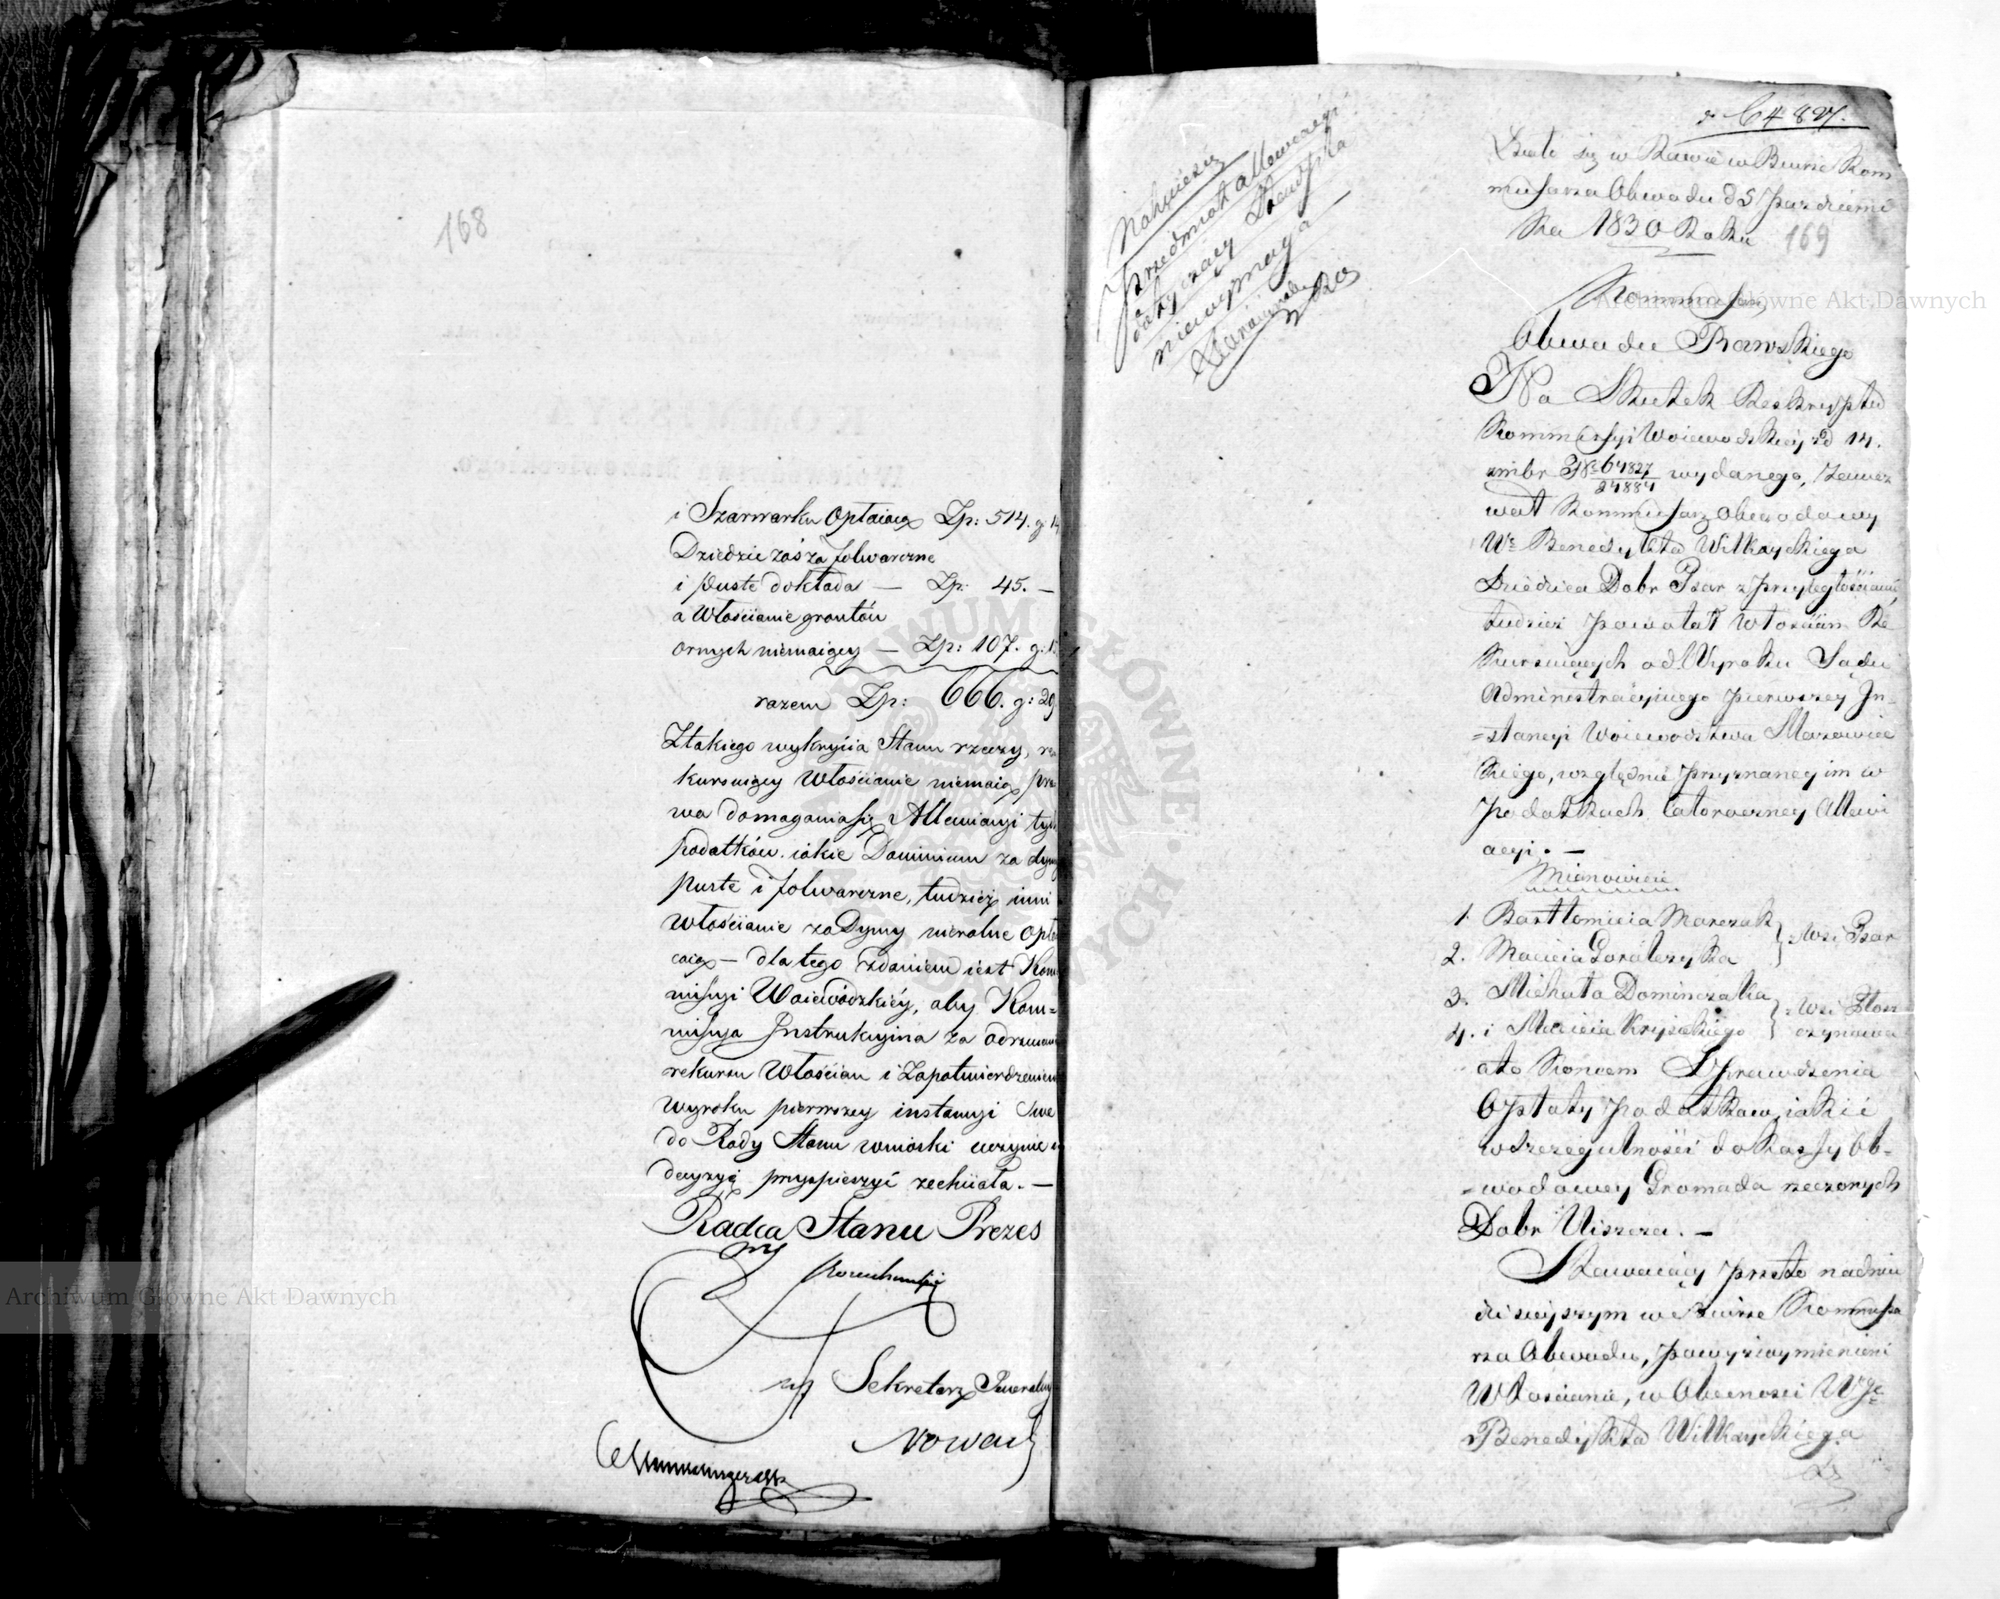 168
i Szarwarku Opłaiaią Zp: 514. g: 14
Dziedzic zaś za folwarczne
i puste dokłada — Zp: 45. —
a Włościanie gruntów
ornych niemaiący — Zp: 107. g:
razem Zp: 666. g: 29
Z takiego wykrycia Stanu rzeczy, re
kursuiący Włościanie niemaią pra
wa domagania się Allewiacyi tych
podatków iakie Dominium za dymy
puste i folwarczne, tudzież inni
włościanie za Dymy nierolne opła
caią — dla tego zdaniem iest Kom
missyi Woiewódzkiéy, aby Kom=
missya Instrukcyina za odrzuceniem
rekursu Włościan i zapotwierdzeniem
wyroku pierwszey instancyi Swe
do Rady Stanu wnioski uczynić i
decyzyą przyspieszyć zechciała. —
Radca Stanu Prezes
Sekretarz Jeneralny
Nowacki
64827.
Działo się w Rawie w Biurze Kom
missarza Obwodu d 5 Październi
ka 1830 Roku 169
przedmiot allewiacyi
dotyczący
niewymaga
Kommissarz
Obwodu Rawskiego
Na Skutek Reskryptu
Kommissyi Woiewodzkiey z d 14.
wydanego, zawez
No 64827/24884
wał Kommissarz Obwodowy
Wo Benedykta Wilkszyckiego
Dziedzica Dobr Psar z przyległościami,
tudzież powołał Włościan Re
kursuiących od Wyroku Sądu
Administracyinego pierwszey In=
=stancyi Woiewodztwa Mazowiec
kiego, względnie przyznaney im w
podatkach całoroczney Allewi
acyi. —
Mianowicie
1. Bartłomieia Marczak
2. Macieia Goralczyka } z Wsi Psar
3. Michała Dominczaka
4. i Macieia Krysickiego } z Wsi
a to Koncem Sprawdzenia
Opłaty podatków, iakie i
w szczegulności do Kassy Ob=
=wodowey Gromada rzeczonych
Dobr Uiszcza. —
Stawaiący przeto na dniu
dzisieyszym w Biurze Kommissa
rza Obwodu, powyż wymienieni
Włościanie, w Obecności Wgo
Benedykta Wilkszyckiego
Archiwum Główne Akt Dawnych
Archiwum Główne Akt Dawnych
ARCHIWUM GŁÓWNE AKT DAWNYCH